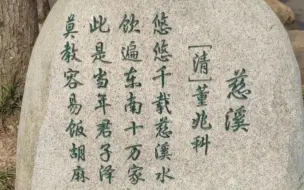 慈溪
[清]董兆科
悠悠千载慈溪水
饮遍东南十万家
此是当年君子泽
莫教容易饭胡麻